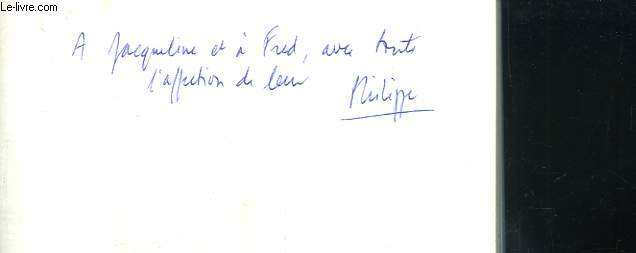 Le-livre.com
A Jacqueline et à Fred, avec toute
l'affection de leur Philippe